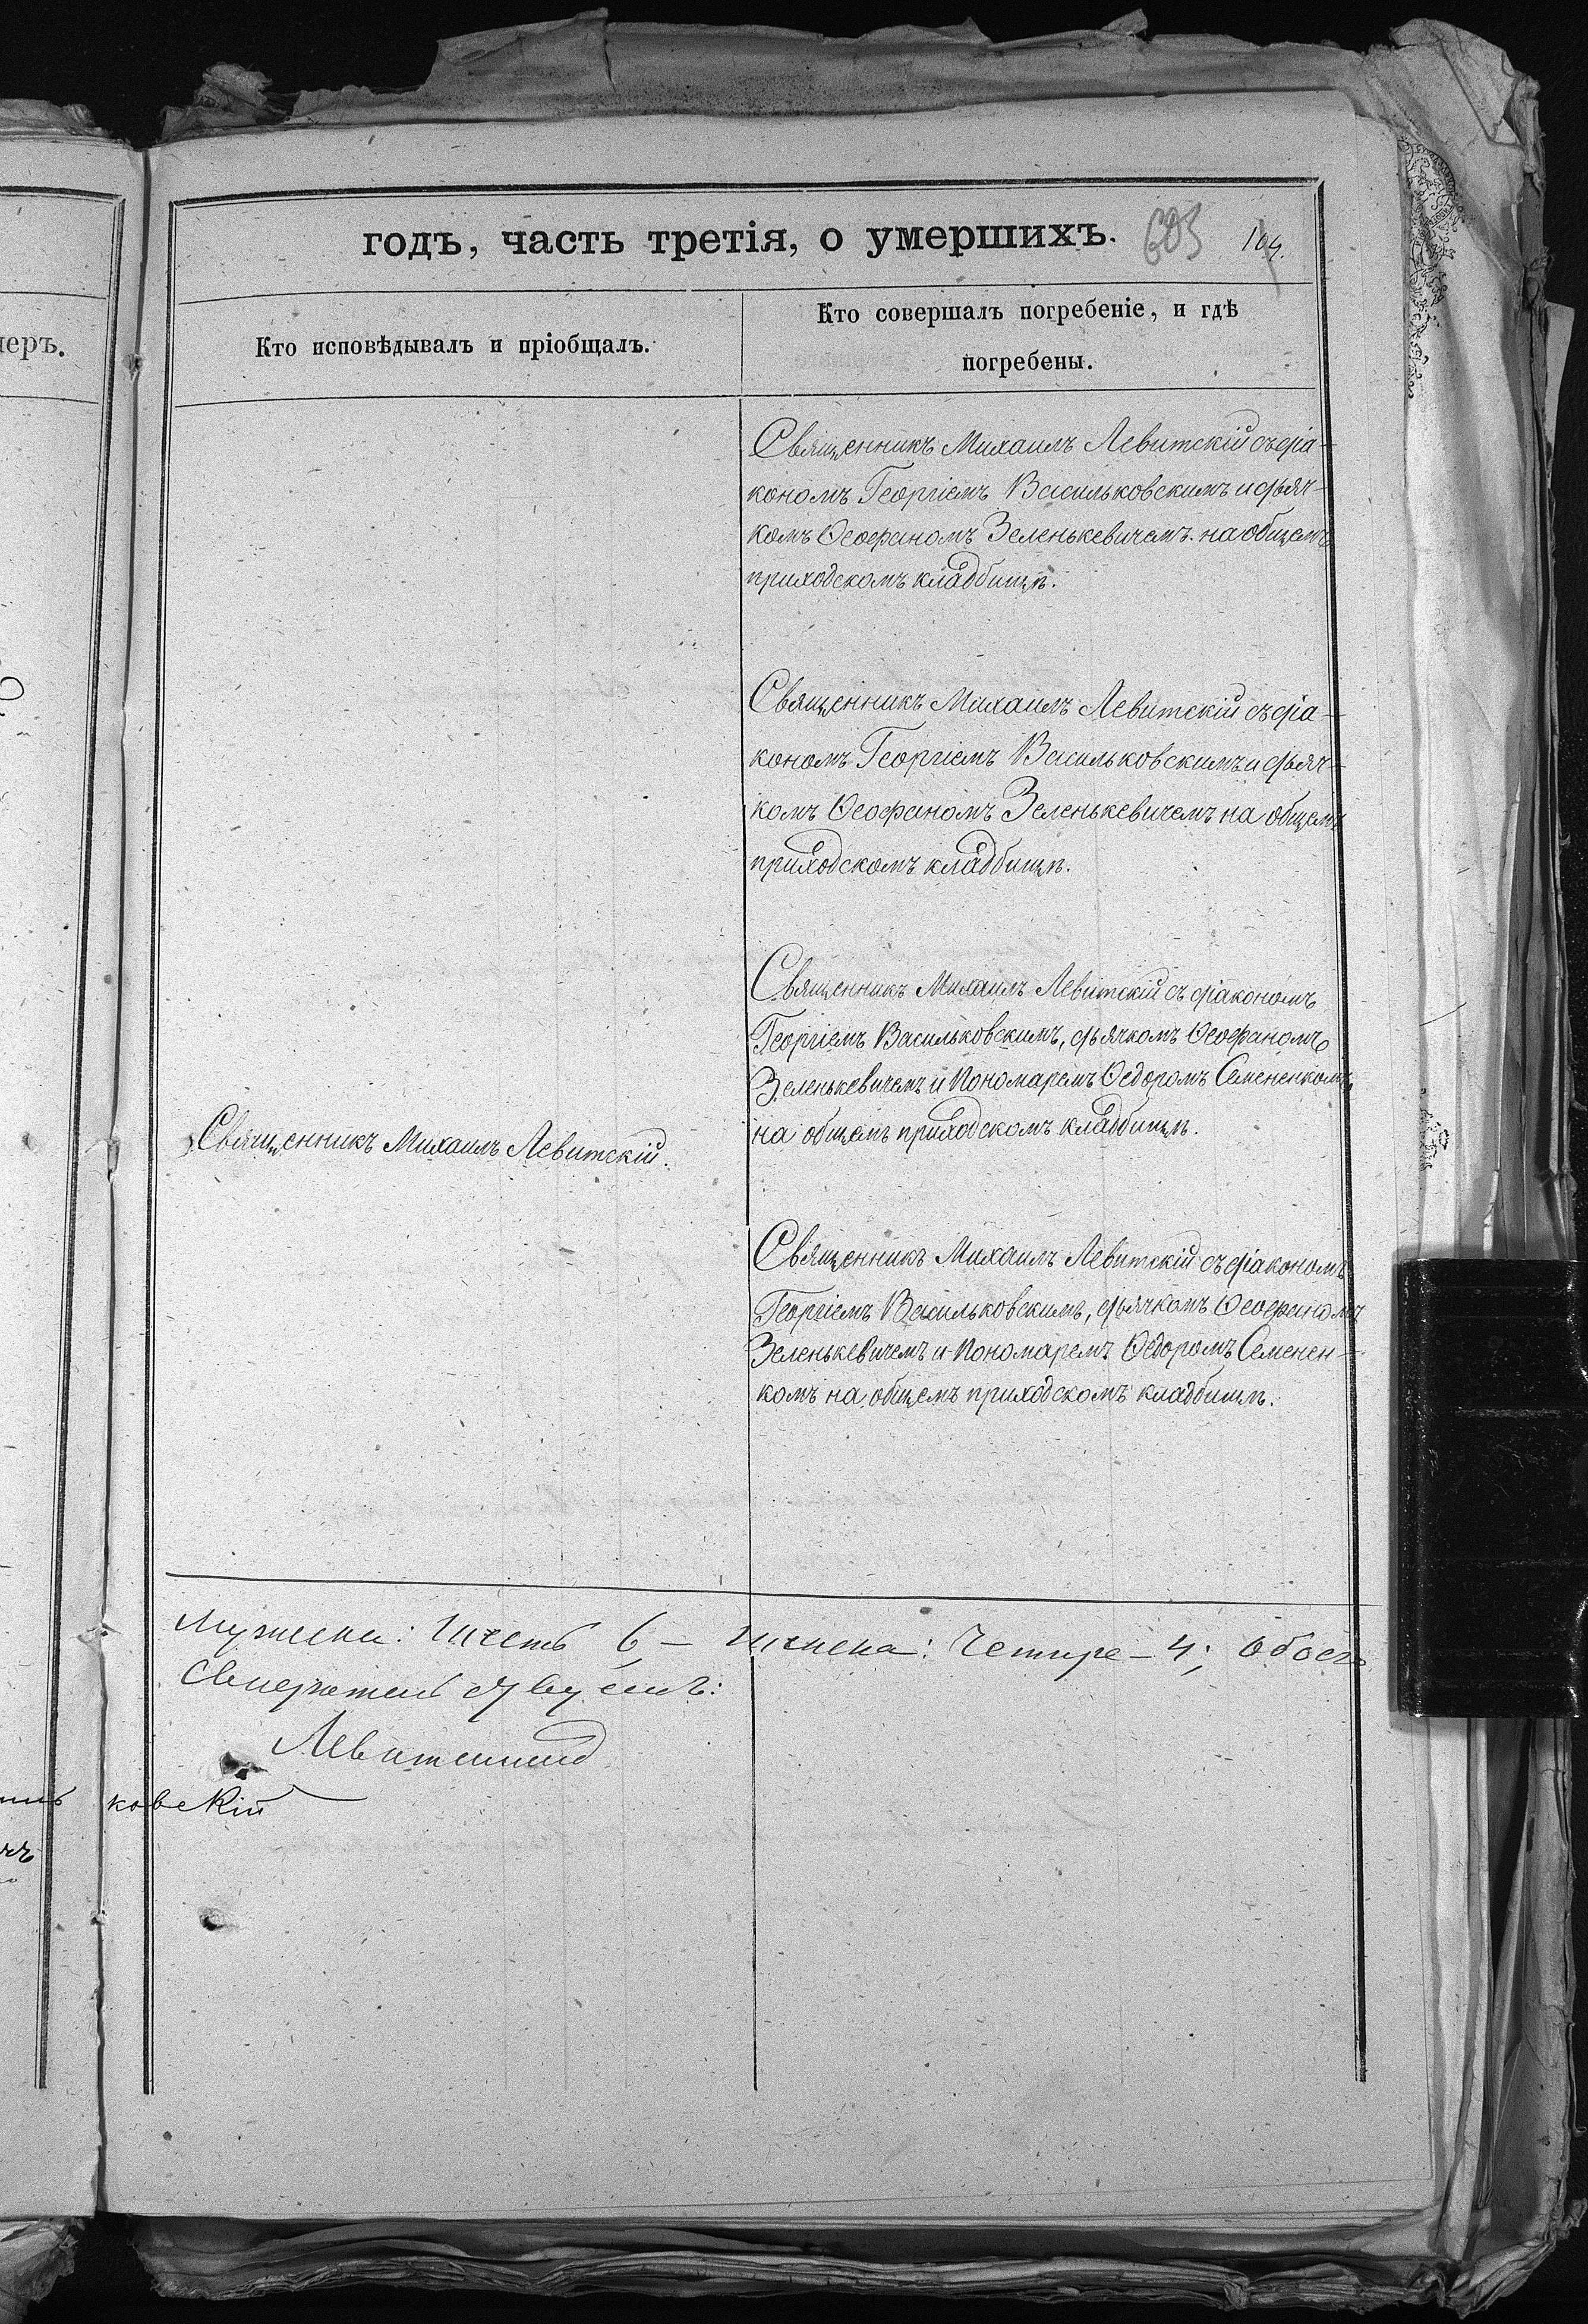 годъ, часть третія, о умершихъ.
603
104.
Кто исповѣдывалъ и пріобщалъ.
Кто совершалъ погребеніе, и гдѣ
погребены.
меръ.
Священникъ Михаилъ Левитскій съ діа-
кономъ Георгіемъ Васильковскимъ и дьяч-
комъ Ѳеофаномъ Зеленькевичемъ. на общемъ
приходскомъ кладбищѣ.
Священникъ Михаилъ Левитскій съ діа-
кономъ Георгіемъ Васильковскимъ и дьяч-
комъ Ѳеофаномъ Зеленькевичемъ на общемъ
приходскомъ кладбищѣ.
Священникъ Михаилъ Левитскій съ діакономъ
Георгіемъ Васильковскимъ, дьячкомъ Ѳеофаномъ
Зеленькевичемъ и Пономаремъ Ѳедоромъ Семененкомъ,
на общемъ приходскомъ кладбищѣ.
Священникъ Михаилъ Левитскій.
Священникъ Михаилъ Левитскій съ діакономъ
Георгіемъ Васильковскимъ, дьячкомъ Ѳеофаномъ
Зеленькевичемъ и Пономаремъ Ѳедоромъ Семенен-
комъ на общемъ приходскомъ кладбищѣ.
Мужеска: Шесть 6, – Женска: Четыре – 4; обоего
Левитскій
ковскій